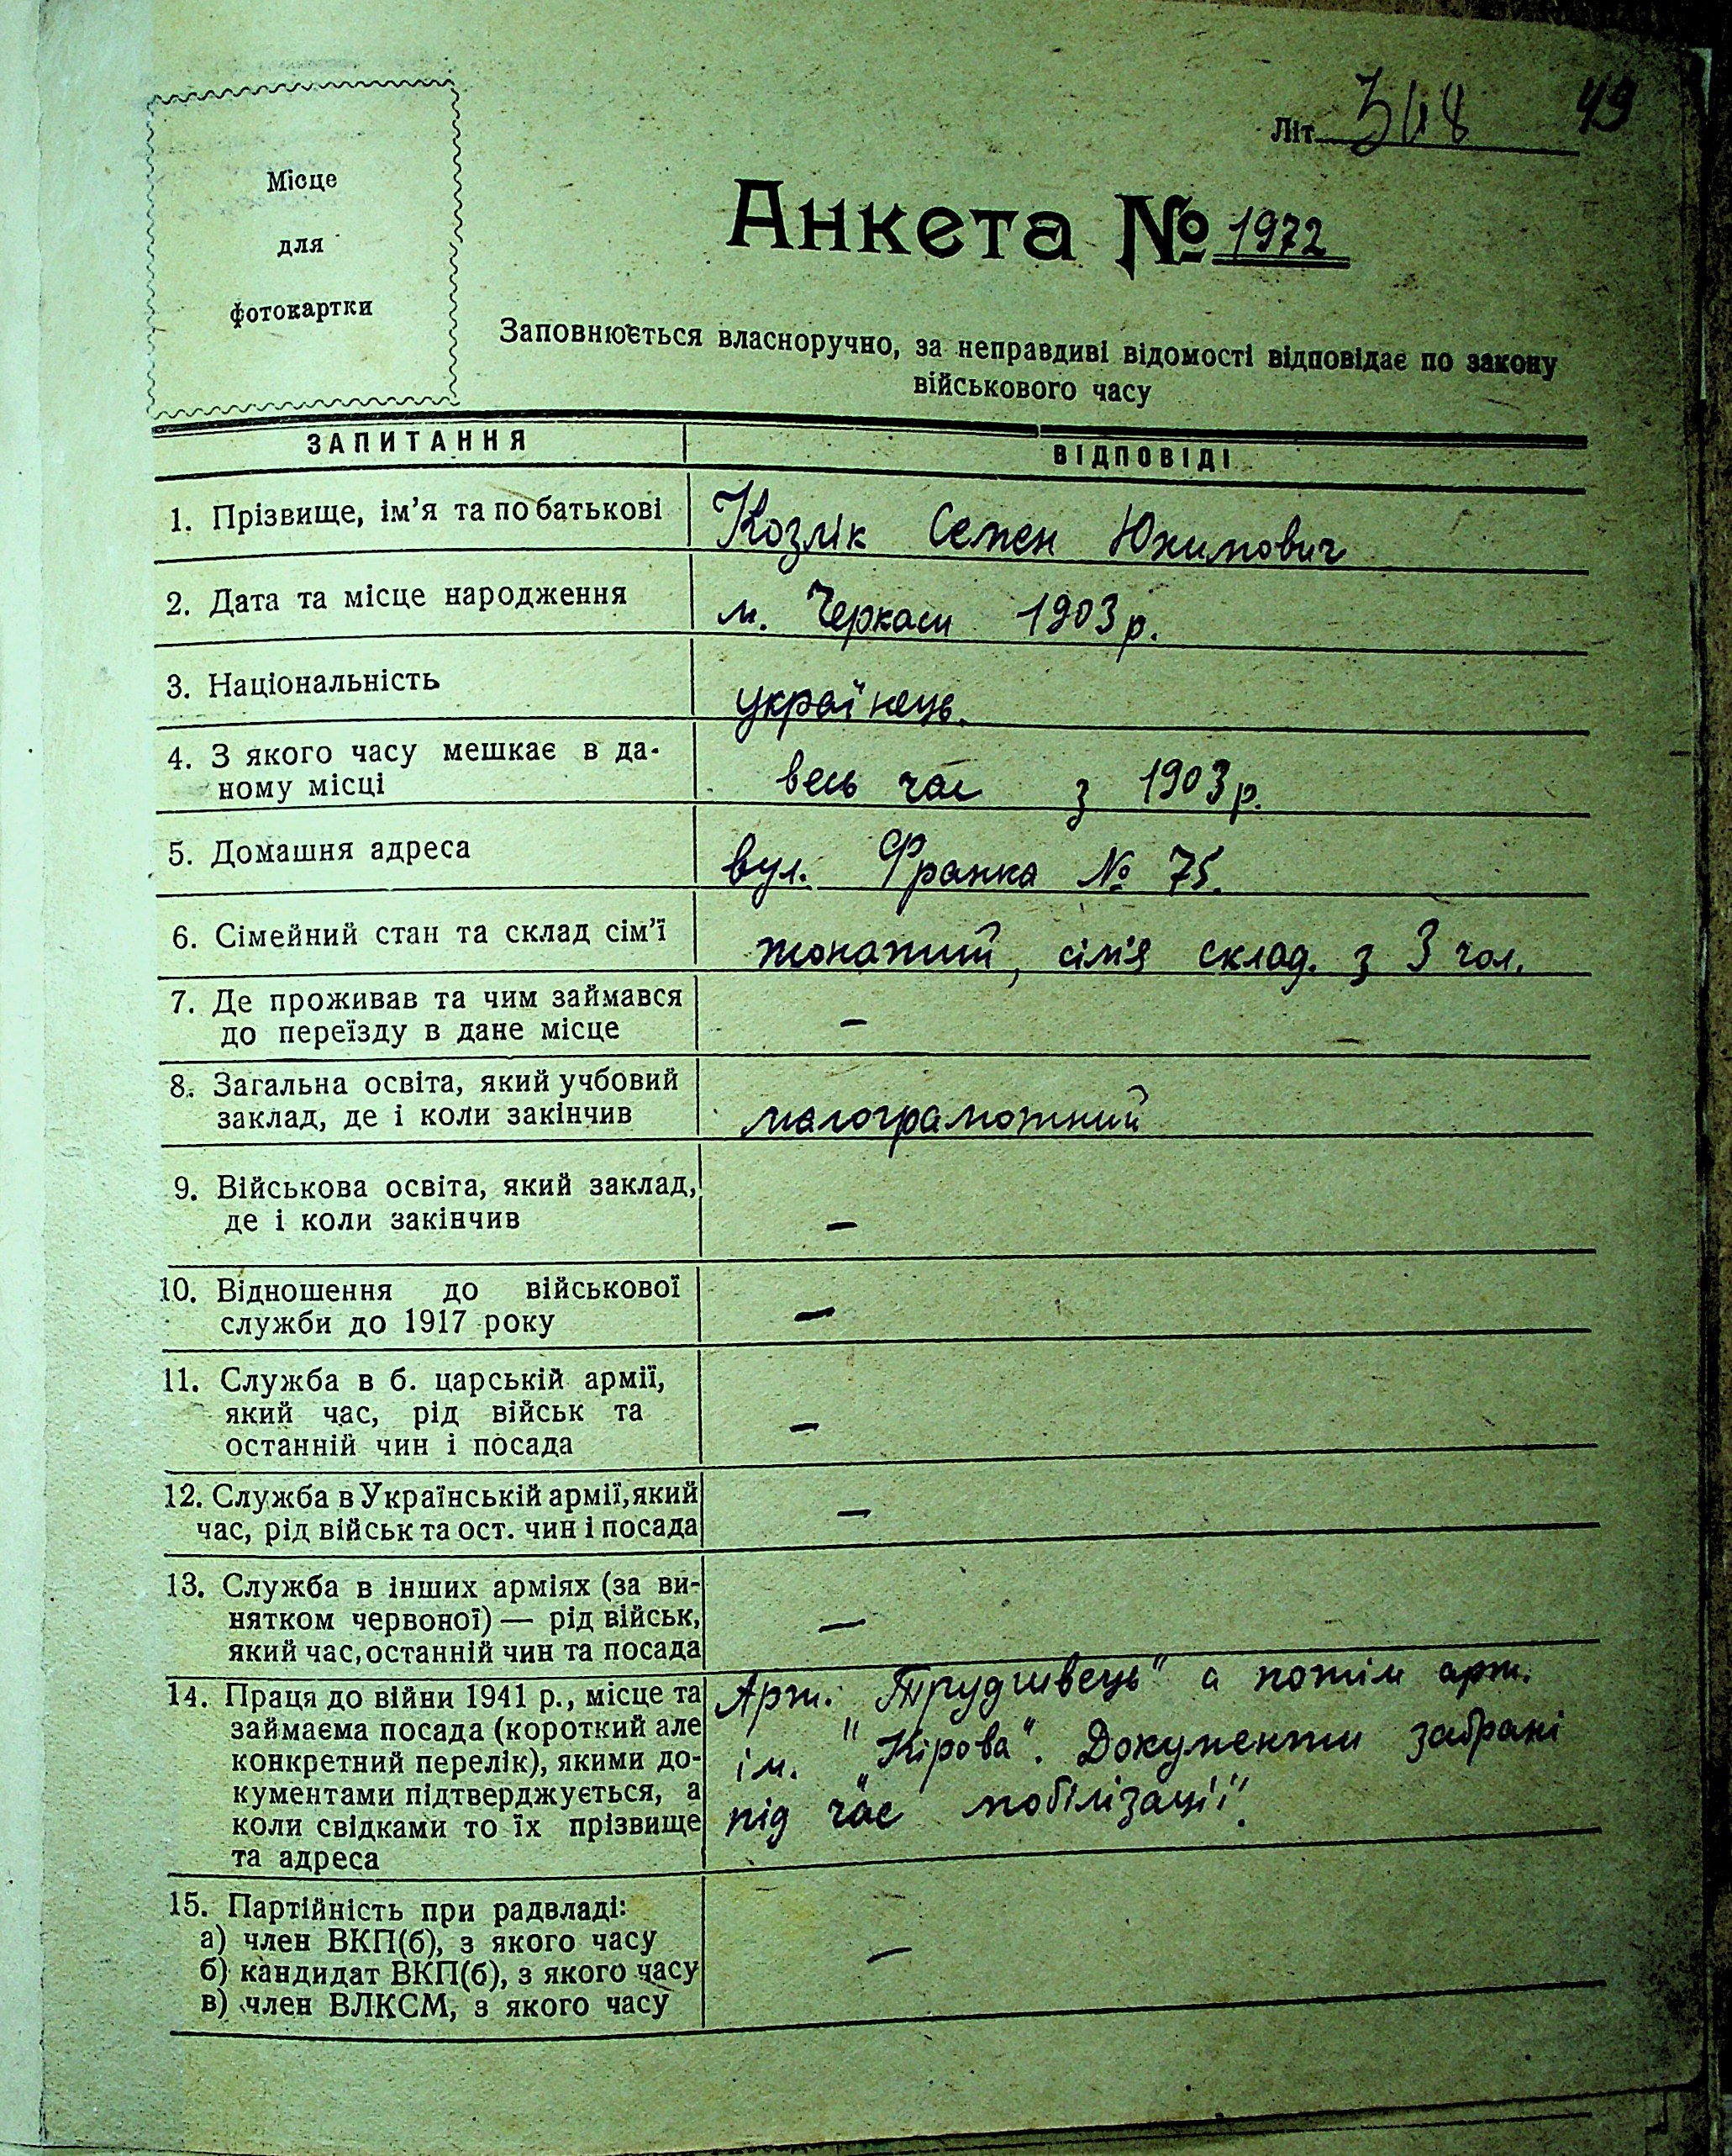 Місце
для
фотокартки
Літ 49
Анкета № 1972
Заповнюється власноручно, за неправдиві відомості відповідає по закону
військового часу
ЗАПИТАННЯ ВІДПОВІДІ
1. Прізвище, ім'я та по батькові Козлік Семен Юхимович
2. Дата та місце народження м. Черкаси 1903 р.
3. Національність українець.
4. З якого часу мешкає в да-
ному місці весь час з 1903 р.
5. Домашня адреса вул. Франка № 75.
6. Сімейний стан та склад сім'ї жонатий, сім'я склад. з 3 чол.
7. Де проживав та чим займався
до переїзду в дане місце —
8. Загальна освіта, який учбовий
заклад, де і коли закінчив малограмотний
9. Військова освіта, який заклад,
де і коли закінчив —
10. Відношення до військової
служби до 1917 року —
11. Служба в б. царській армії,
який час, рід військ та
останній чин і посада —
12. Служба в Українській армії, який
час, рід військ та ост. чин і посада —
13. Служба в інших арміях (за ви-
нятком червоної) — рід військ,
який час, останній чин та посада —
14. Праця до війни 1941 р., місце та
займаєма посада (короткий але
конкретний перелік), якими до-
кументами підтверджується, а
коли свідками то їх прізвище
та адреса
Арт. "Трудшвець" а потім арт.
ім. "Кірова". Документи забрані
під час мобілізації.
15. Партійність при радвладі:
а) член ВКП(б), з якого часу
б) кандидат ВКП(б), з якого часу
в) член ВЛКСМ, з якого часу —